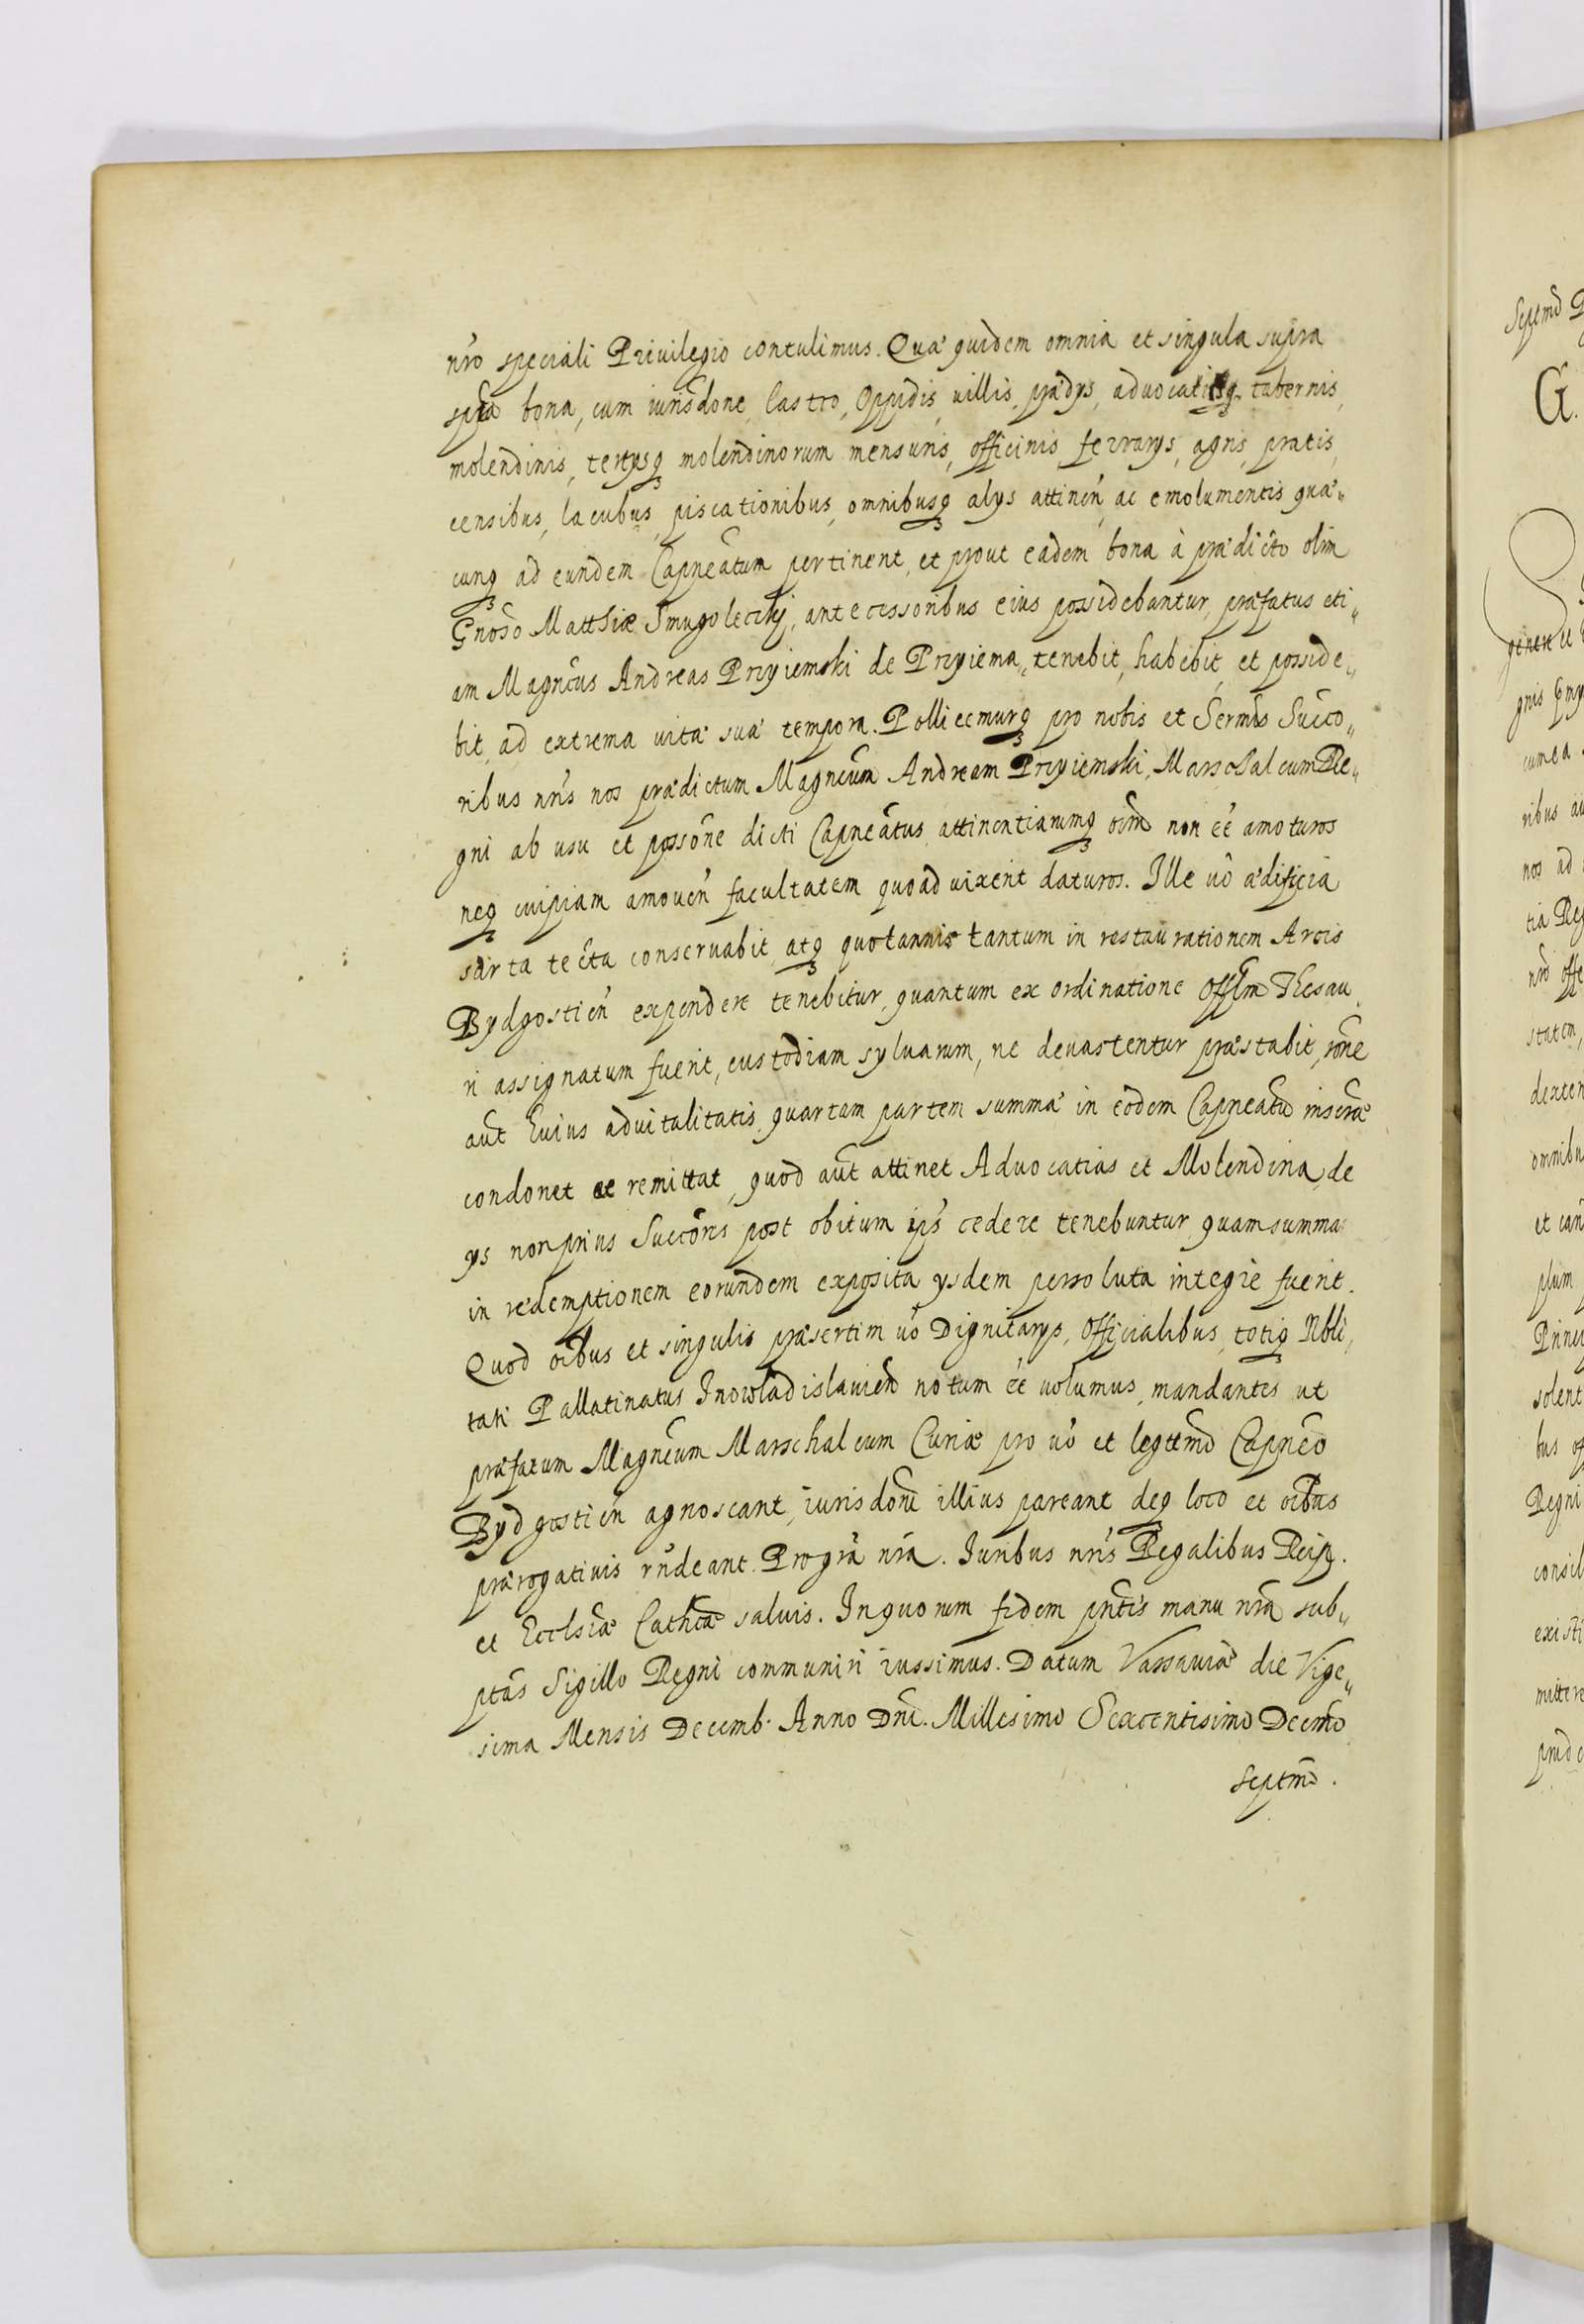 nro speciali Priuilegio contulimus. Quæ quidem omnia et singula supra
spta bona, cum iurisdone, Castro, Oppidis, uillis, prædys, aduocatysq, tabernis,
molendinis, tertysq molendinorum mensuris, officinis ferrarys, agris, pratis,
censibus, lacubus, piscationibus, omnibusq alys attinen, ac emolumentis quæ„
cunq ad eundem Capneatum pertinent, et prout eadem bona à prædicto olim
Gnoso Matthiæ Smugolecky, antecessoribus eius possidebantur, præfatus eti„
am Magncus Andreas Przyiemski de Przyiema, tenebit, habebit, et posside„
bit, ad extrema uitæ suæ tempora. Pollicemurq pro nobis et Sermis Succo„
ribus nris nos prædictum Magncum Andream Przyiemski, Marschalcum Re„
gni ab usu et possone dicti Capneatus, attinentiarumq oim non ee amoturos
neq cuipiam amouen facultatem quoad uixerit daturos. Ille uo ædificia
sarta tecta conseruabit, atq quotannis tantum in restaurationem Arcis
Bydgostien expendere tenebitur, quantum ex ordinatione Offlm Thesau
ri assignatum fuerit, custodiam syluarum, ne deuastentur præstabit, rone
aut huius aduitalitatis quartam partem summæ in eodem Capneatu inscræ
condonet ac remittat, quod aut attinet Aduocatias et Molendina, de
ys non prius Succores post obitum ips cedere tenebuntur, quam summa
in redemptionem eorundem exposita ysdem persoluta integre fuerit.
Quod oibus et singulis præsertim uo Dignitarys, Officialibus, totiq Nbli„
tati Pallatinatus Inowladislauien notum ee uolumus, mandantes ut
præfatum Magncum Marschalcum Curiæ pro uo et legttmo Capneo
Bydgostien agnoscant, iurisdoni illius pareant, deq loco et oibus
prærogatiuis rndeant. Pro gra nra. Iuribus nris Regalibus Reip.
et Ecclsiæ Cathcæ saluis. In quorum fidem pntis manu nra sub„
ptas Sigillo Regni communiri iussimus. Datum Varsauiæ die Vige„
sima Mensis Decemb. Anno Dni. Millesimo Sexcentisimo Decmo
Septmo.